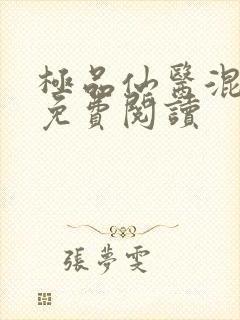 極品仙醫混
免費閱讀
張夢雯